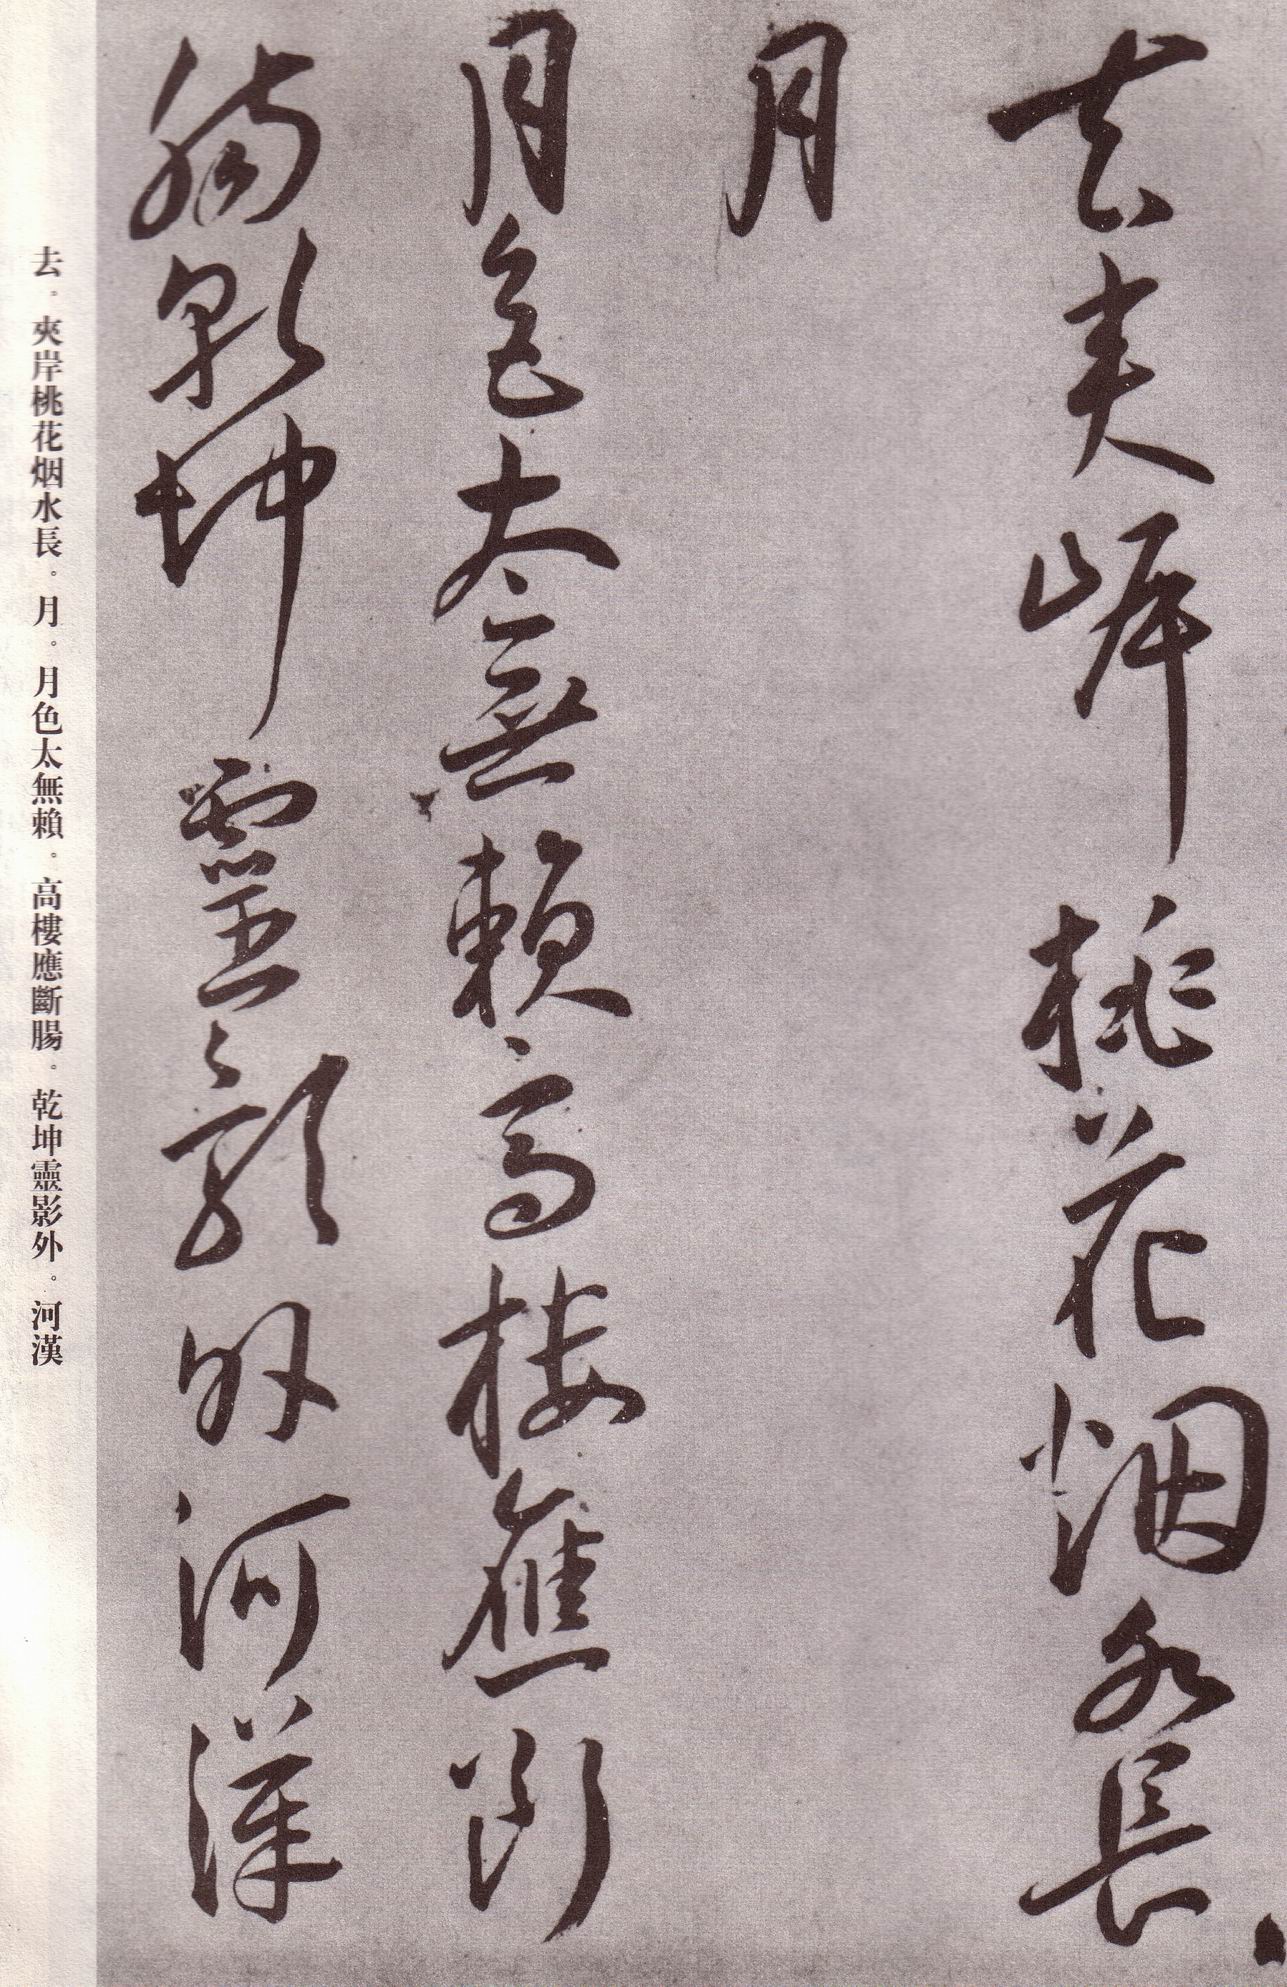 去夾岸桃花烟水長
月
月色太無賴高樓應斷
腸乾坤靈影外河漢
去。夾岸桃花烟水長。月。月色太無賴。高樓應斷腸。乾坤靈影外。河漢